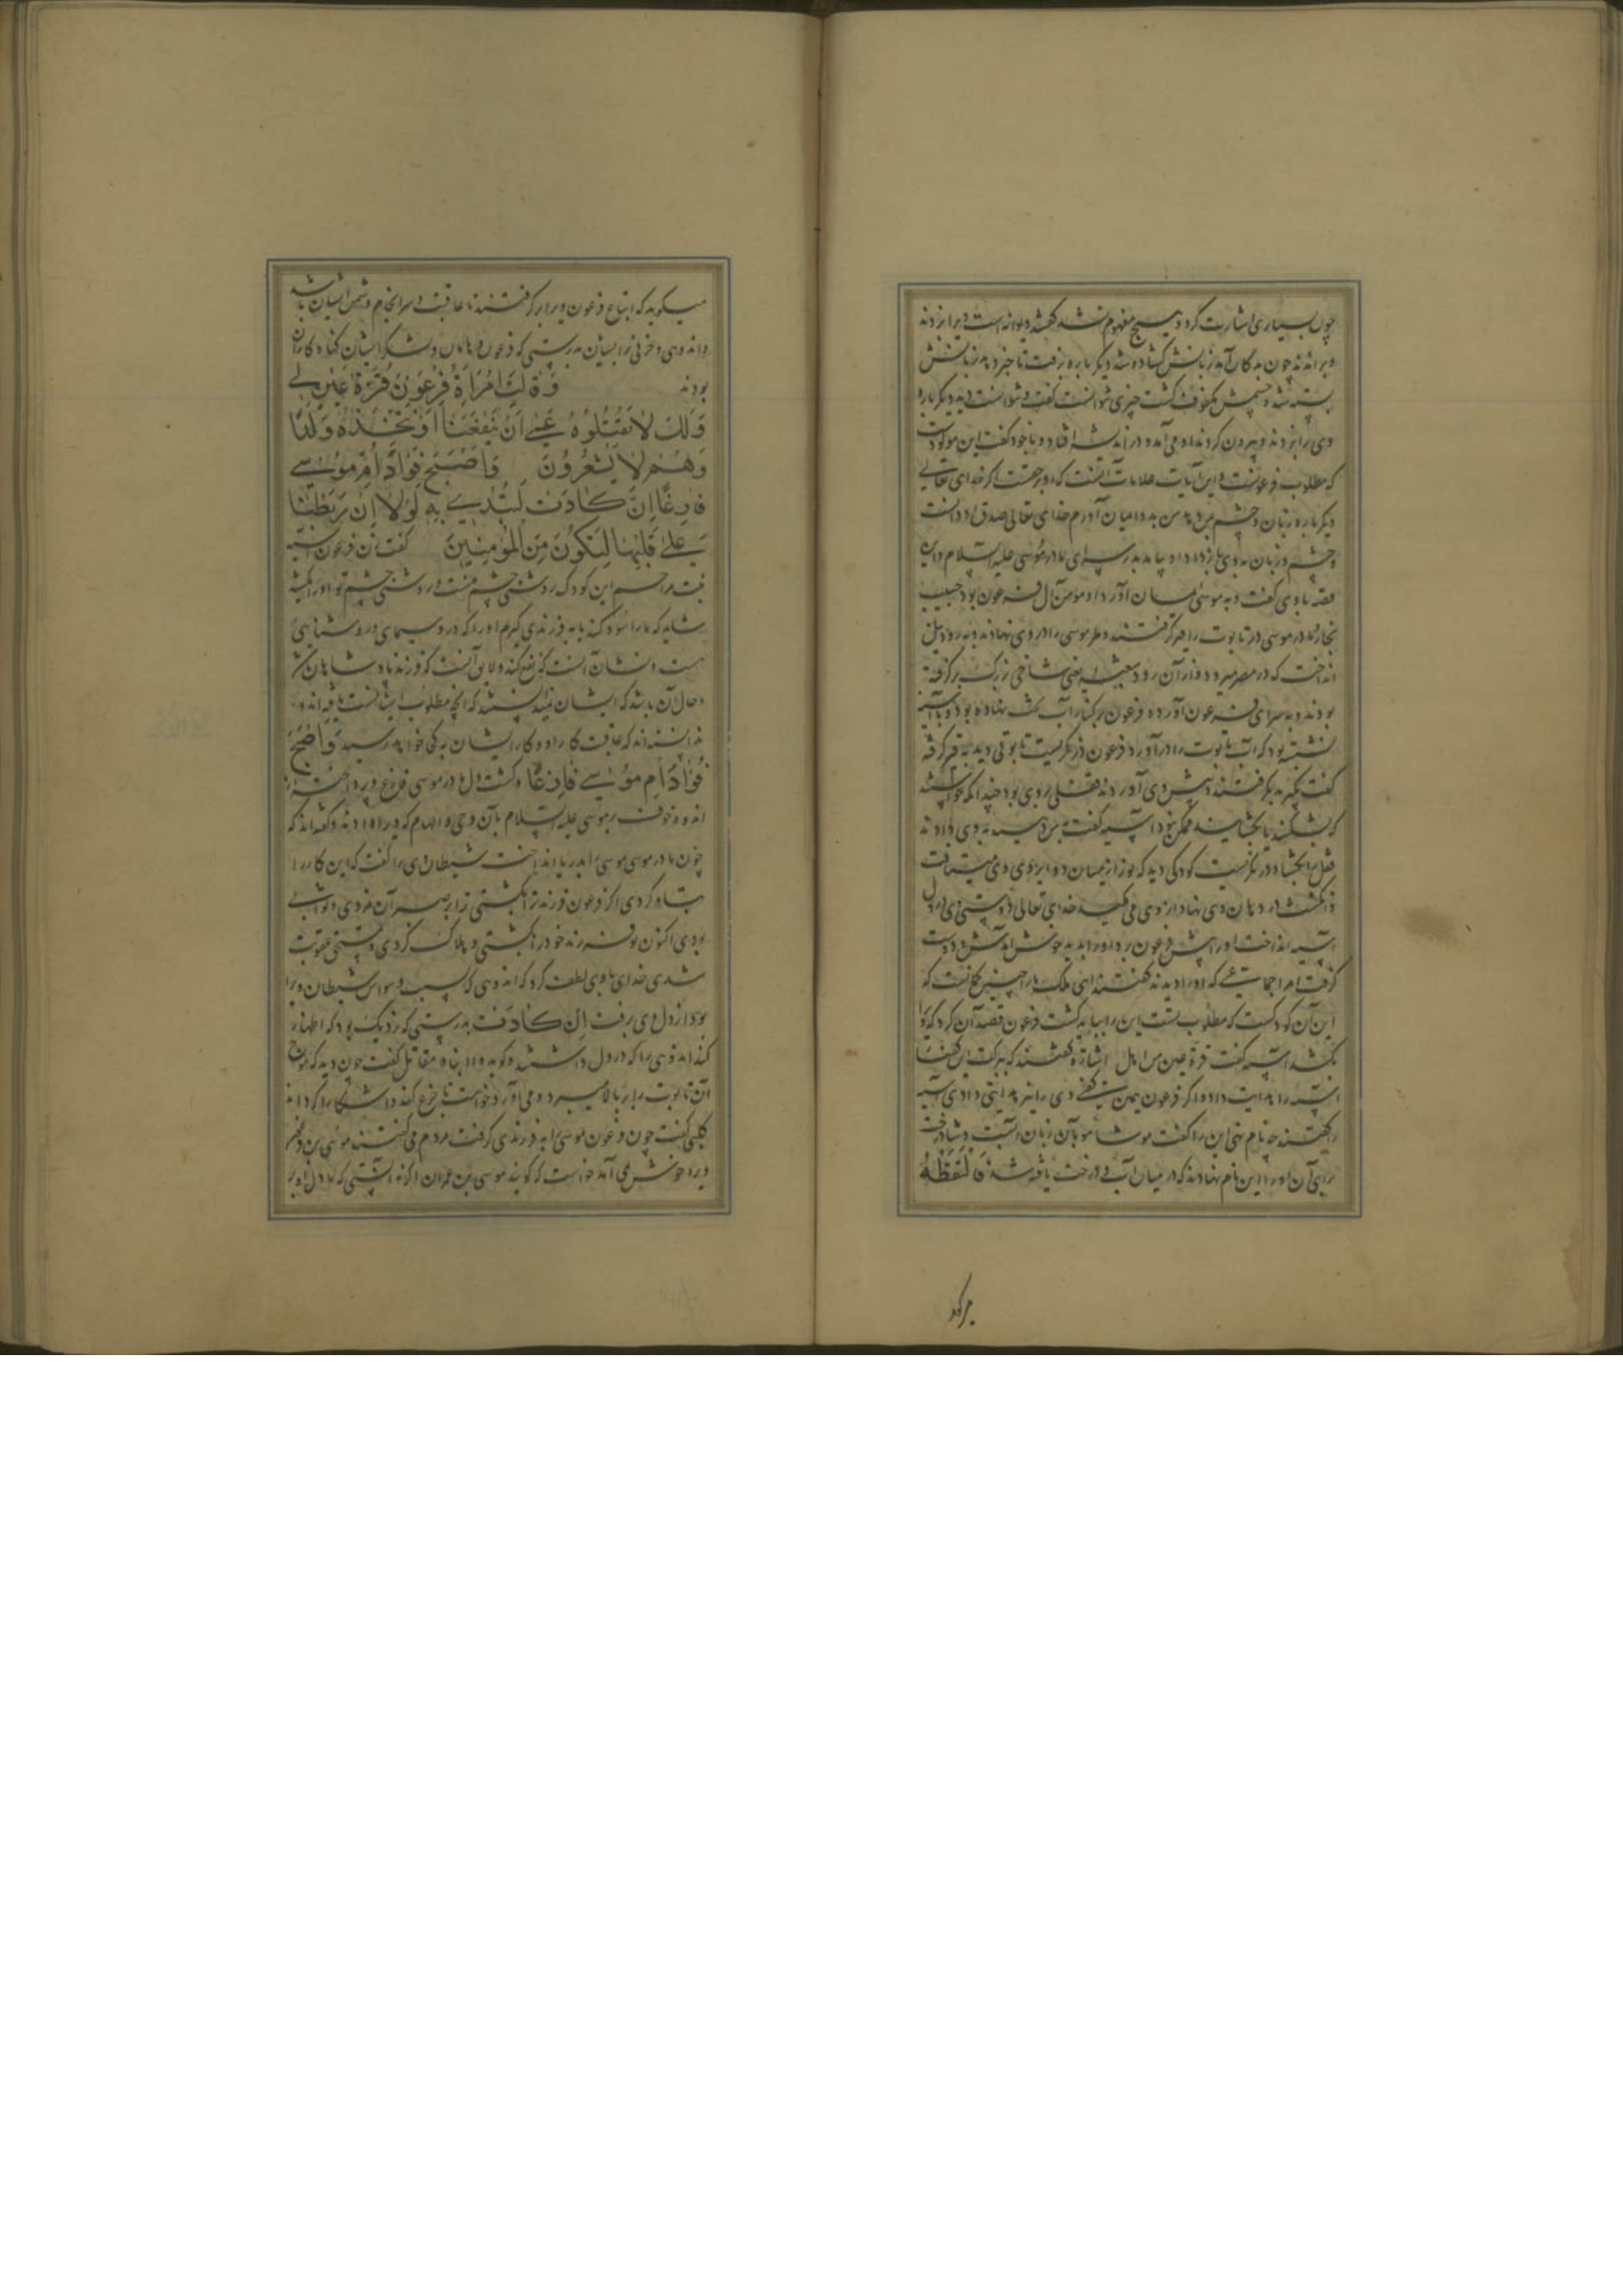 چون بسیاری اشارت کرد و هیچ مفهوم نشد گفتند دیوانه است ویرا بزدند
وبراندند چون بدکان آمد زبانش گشاده شد دیگر باره برفت تا خبر دهد زبانش
بسته شد و چشمش مکفوف گشت چیزی نتوانست گفت و نتوانست دید دیگر باره
وی را بزدند و بیرون کردند او می آمد و در اندیشه افتاد و با خود گفت این مولود
که مطلوب فرعونست و این آیات علامات آنست که او بر حقست اگر خدای تعالی
دیگر باره زبان و چشم من بمن دهد ایمان آورم خدای تعالی صدق او دانست
و چشم و زبان به وی باز داد او بیامد بدر سرای مادر موسی علیه السلام و این
قصه با وی گفت و به موسی ایمان آورد او مومن آل فرعون بود حبیب
نجار مادر موسی در تابوت را قیر گرفتند و مر موسی را در وی نهادند و به رود نیل
انداخت که در مصر میرود و از آن رود شعبه یعنی شاخی بزرگ بر گرفته
بودند و به سرای فرعون آورده فرعون بر کنار آب تخت نهاده بود و با آسیه
نشسته بود که آب تابوت را در آورد فرعون در نگریست تابوتی دید به قیر گرفته
گفت بگیرید بگرفتند و پیش وی آوردند قفلی بر وی بود چندانکه خواستند
که بشکنند یا بگشایند ممکن نبود آسیه گفت به من دهید به وی دادند
قفل را بگشاد و در نگریست کودکی دید که نور از میان دو ابروی وی می تافت
و انگشت در دهان وی نهاد از وی می مکید خدای تعالی دوستی وی در دل
آسیه انداخت او را پیش فرعون برد او را بدید خوش آمدش و دوست
گرفت امرا جماعتی که او را دیدند گفتند ای ملک ما را چنین گمانست که
این آن کودکست که مطلوب تست این را بباید کشت فرعون قصد آن کرد که ویرا
بکشد آسیه گفت قرة عین من اهل اشارة گفتند که ببرکت این گفت
آسیه را هدایت داد و اگر فرعون بمن گفتی وی را نیز هدایتی دادی آسیه
را گفتند چه نام نهی این را گفت موشا مو بآن زبان آبست و شا درخت
برای آن او را این نام نهادند که در میان آب و درخت یافته شد فَالْتَقَطَهُ
میگوید که اتباع فرعون ویرا بر گرفتند تا عاقبت و سرانجام دشمن ایشان باشد
و اندوهی و حزنی مر ایشان بدرستی که فرعون و هامان و لشکر ایشان گناه کاران
بودند وَقالَتِ امْرَأَةُ فِرْعَوْنَ قُرَّةُ عَيْنٍ لِي
وَلَكَ لا تَقْتُلُوهُ عَسى أَنْ يَنْفَعَنا أَوْ نَتَّخِذَهُ وَلَدًا
وَهُمْ لا يَشْعُرُونَ وَأَصْبَحَ فُؤادُ أُمِّ مُوسى
فارِغًا إِنْ كادَتْ لَتُبْدِي بِهِ لَوْلا أَنْ رَبَطْنا
عَلى قَلْبِها لِتَكُونَ مِنَ الْمُؤْمِنِينَ گفت زن فرعون آسیه
بنت مزاحم این کودک روشنی چشم منست و روشنی چشم تو او را مکشید
شاید که ما را سود کند یا به فرزندی گیریم او را که در وی سیمای و روشنایی
هست و نشان آنست که نفع کند و لایق آنست که فرزند پادشاهان باشد
و حال آن باشد که ایشان ندانستند که آنچه مطلوب ایشانست یافته اند و
ندانسته اند که عاقبت کار او و کار ایشان به کی خواهد رسید وَأَصْبَحَ
فُؤادُ أُمِّ مُوسى فارِغًا و گشت دل مادر موسی فارغ و پرداخته از
اندوه و خوف بر موسی علیه السلام بآن وحی و الهام که ویرا داده بودند و گفته اند که
چون مادر موسی موسی را بدریا انداخت شیطان وی را گفت که این کار را
تباه کردی اگر فرعون فرزند ترا بکشتی ترا بر آن مزدی و ثوابی
بودی اکنون تو فرزند خود را بکشتی و هلاک کردی و مستحق عقوبت
شدی خدای با وی لطف کرد که اندوهی که بسبب وسواس شیطان ویرا
بود از دل وی برفت إِنْ كادَتْ بدرستی که نزدیک بود که اظهار
کند اندوهی را که در دل داشتند و گوید وا ابناه مقاتل گفت چون دید که موج
آن تابوت را بر بالا میبرد و می آورد خواست تا جزع کند و آشکارا کرداند
کلبی گفت چون فرعون موسی را به فرزندی گرفت مردم می گفتند موسی بن فرعون
ویرا خوش نمی آمد خواست که گوید موسی بن عمران اگر نه آنستی که ما دل او را